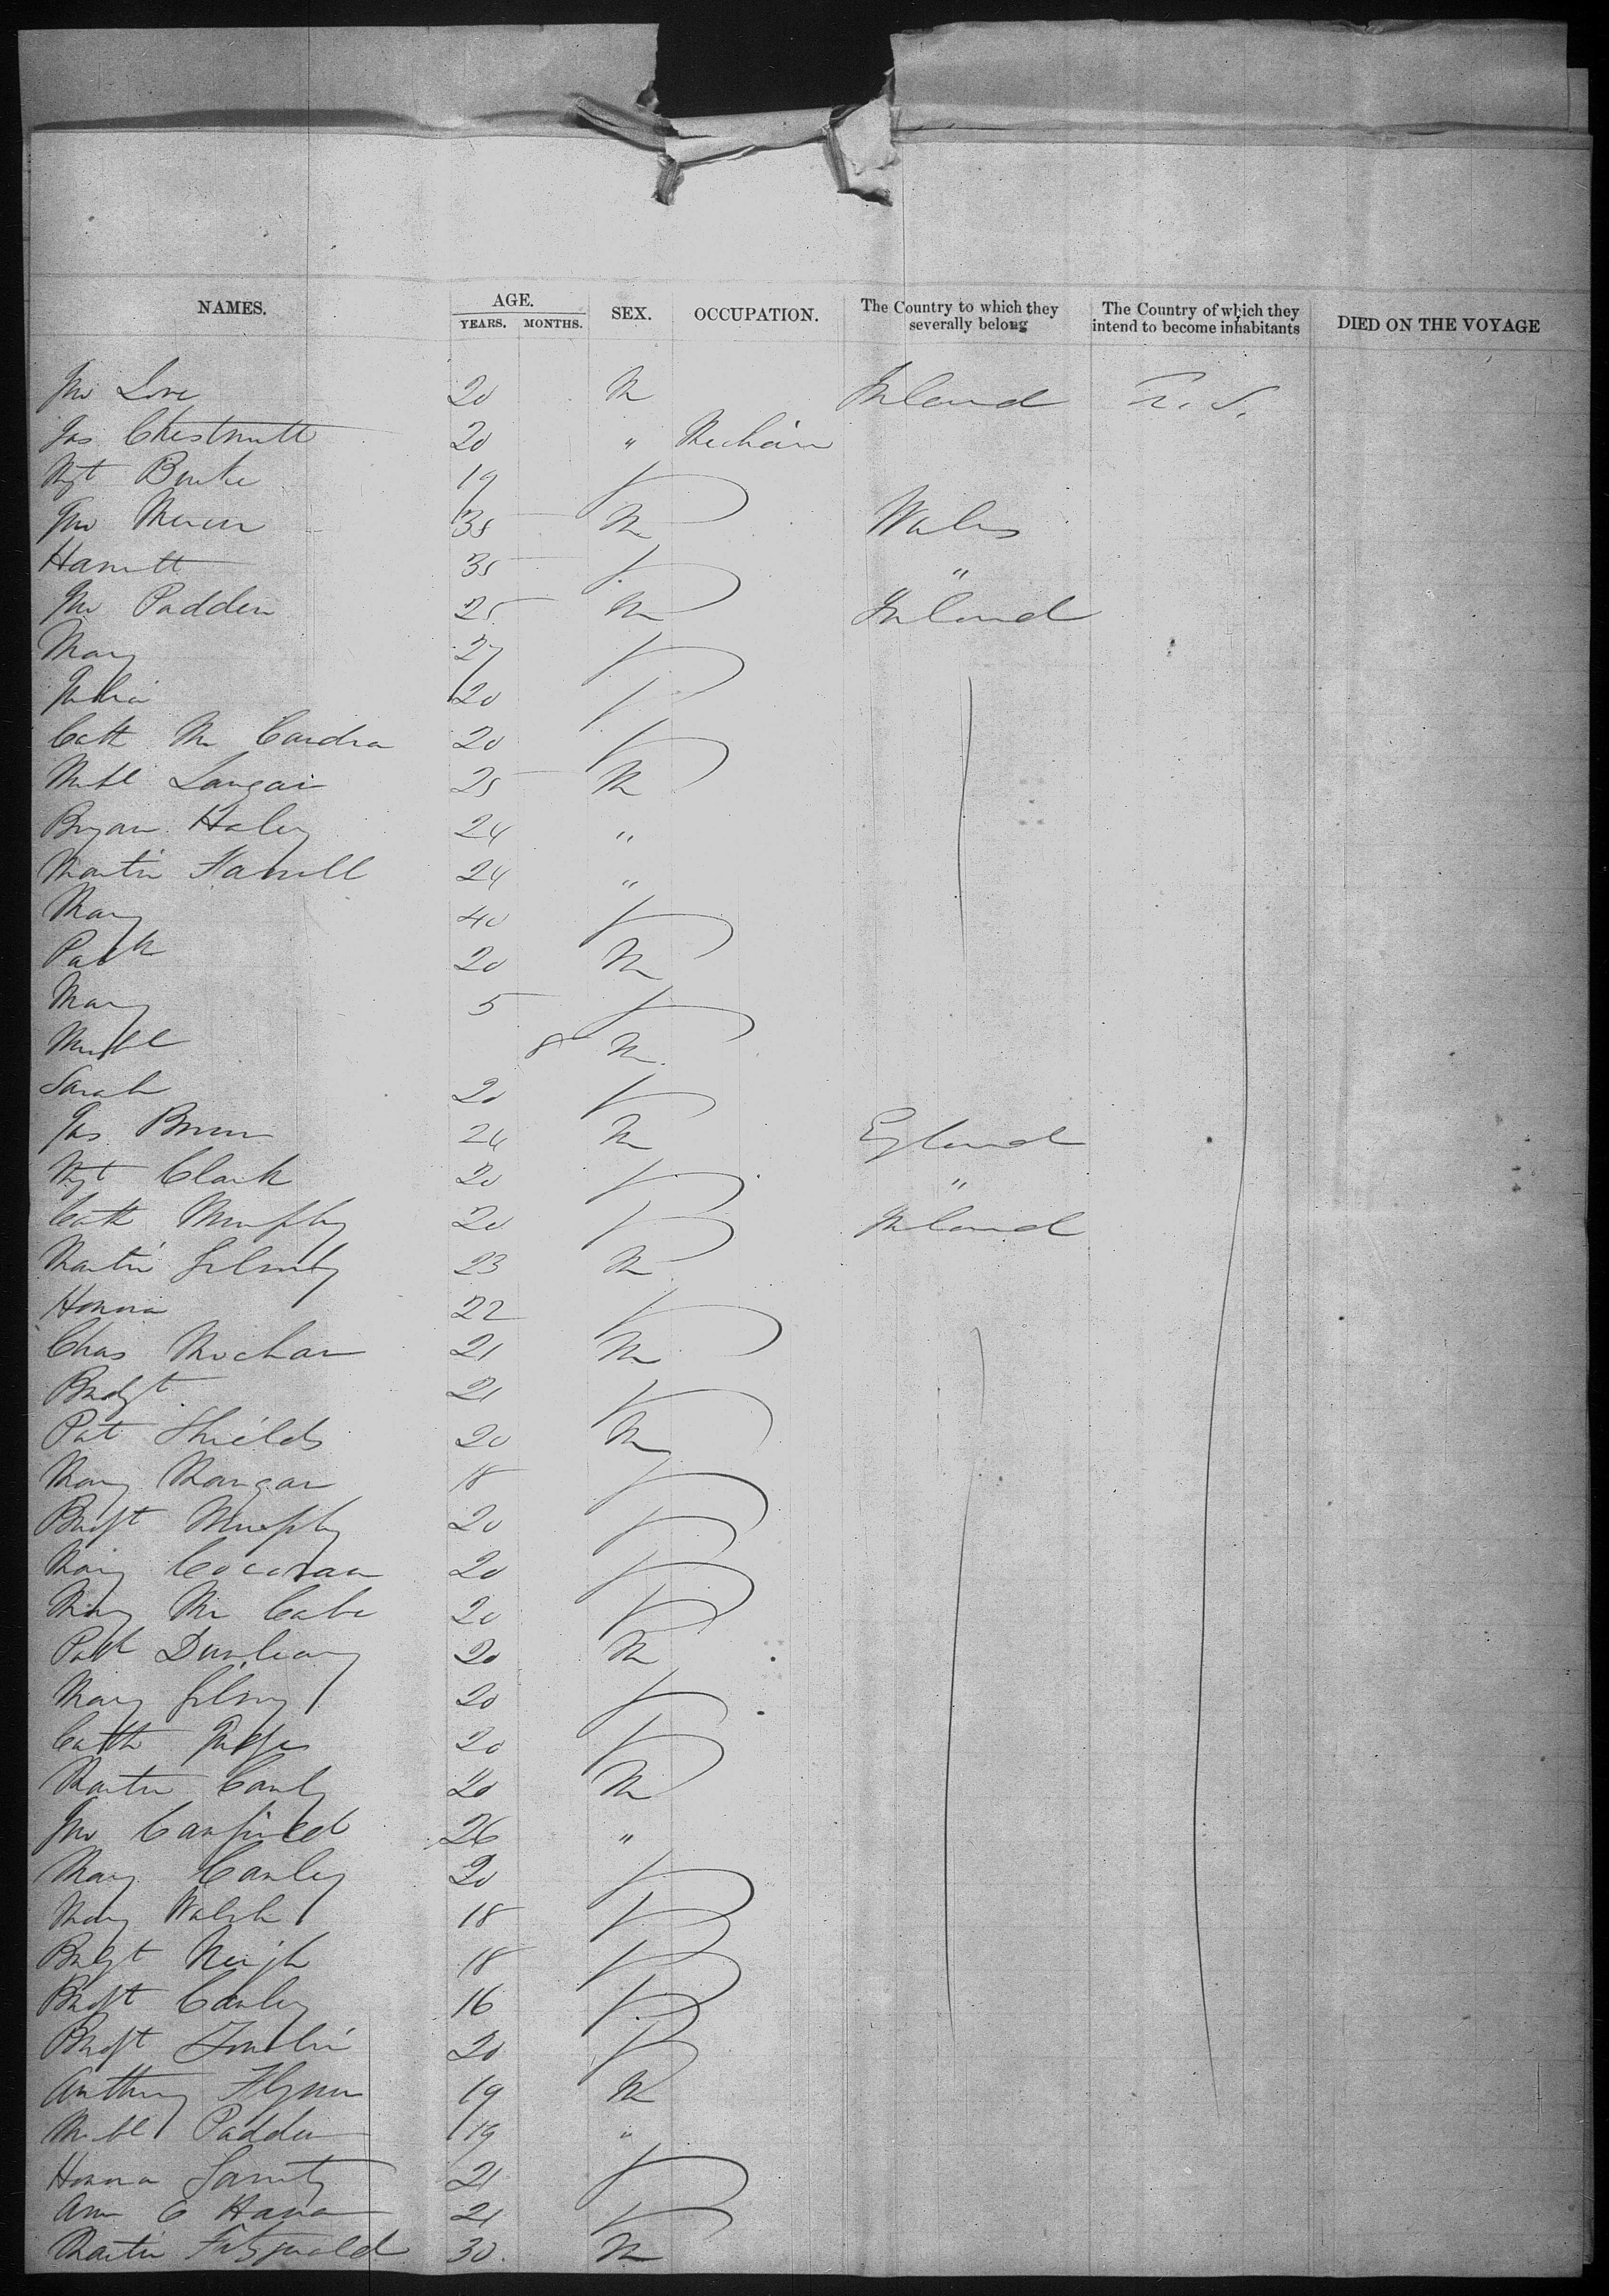 NAMES. AGE. YEARS. MONTHS. SEX. OCCUPATION. The Country to which they severally belong The Country of which they intend to become inhabitants DIED ON THE VOYAGE
Jno Love 20 M Ireland U. S.
Jas Chestnutt 20 "
Mgt Burke 19 F
Jno 35 M Wales
Harriett 35 F "
Jno Padden 25 M Ireland
Mary 27 F
Julia 20 F
Cath 20 F
Michl 25 M
Bryan Haley 24 "
Martin Farrell 24 "
Mary 40 F
Patk 20 M
Mary 5 F
Michl 8 M
Sarah 20 F
Jas 24 M England
Mgt Clark 20 F "
Cath Murphy 20 F Ireland
Martin 23 M
Honora 22 F
Chas 21 M
Bridgt 21 F
Pat Shields 20 M
Mary Mangan 18 F
Bridgt Murphy 20 F
Mary Cocoran 20 F
Mary Mc Cabe 20 F
Patk Dunleavy 20 M
Mary 20 F
Cath 20 F
Martin 20 M
Jno Canfield 26 "
Mary Canley 20 F
Mary Walsh 18 F
Bridgt 18 F
Bridgt Canley 16 F
Bridgt 20 F
Anthony Flynn 19 M
Michl Padden 19 "
Honora 21 F
Ann O Hara 21 F
Martin Fitzgerald 30 M